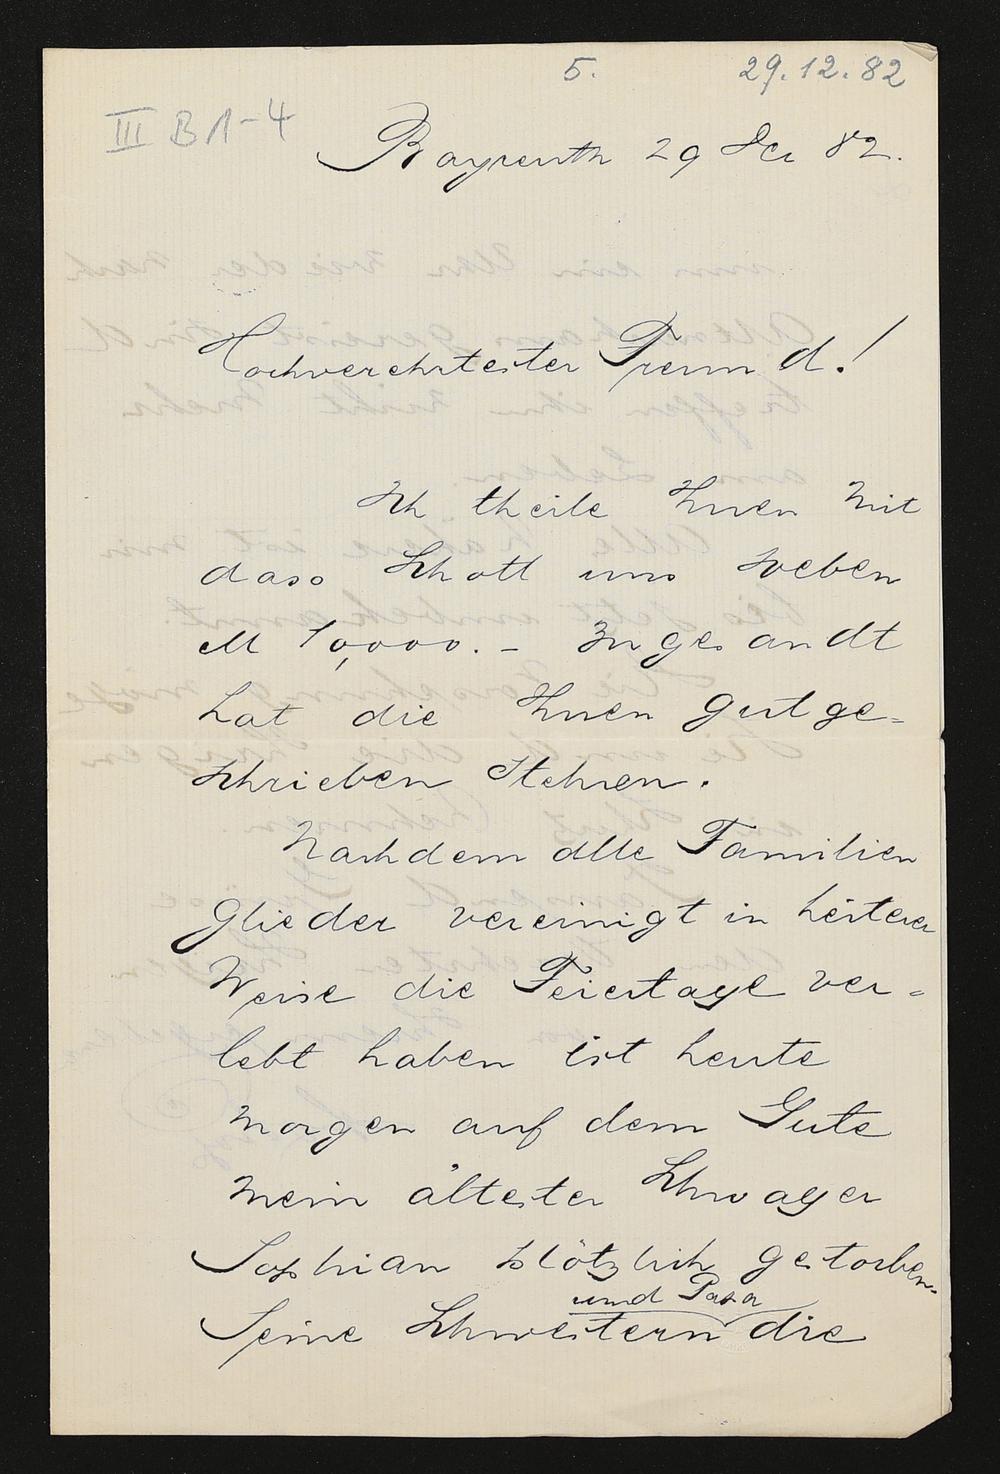 5.
29.12.82
III B A-4
Bayreuth 29 Dec 82.
Hochverehrtester Freund!
Ich theile Ihnen mit
dass Schott uns soeben
M 10,000.- zugesandt
hat die Ihnen gutge-
schrieben stehen.
Nachdem alle Familien
Glieder vereinigt in heiterer
Weise die Feiertage ver-
lebt haben ist heute
morgen auf dem Gute
mein ältester Schwager
plötzlich gestorben.
und Papa
Seine Schwestern die